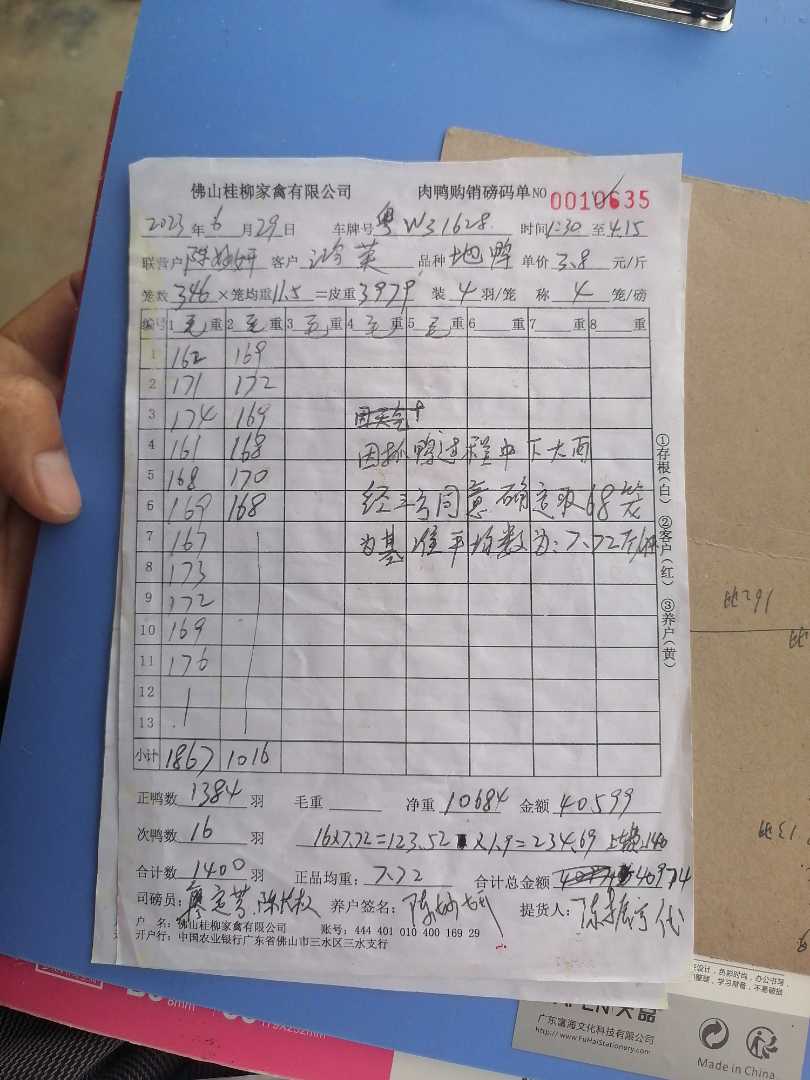 佛山桂柳家禽有限公司 肉鸭购销磅码单 NO 0010635
2023年6月29日 车牌号 粤W31628 时间1:30至4.15
联营户 陈妙妍 客户 英 品种 地鸭 单价 3.8 元/斤
笼数 346 ×笼均重 11.5 =皮重 3979 装 4 羽/笼 称 4 笼/磅
编号 1 毛 重 2 毛 重 3 毛 重 4 毛 重 5 毛 重 6 重 7 重 8 重
1 162 169
2 171 172
3 174 169
4 161 168 因抓鸭过程中下大雨
5 168 170
6 169 168 经三方同意确定取68笼
7 167 为基准平均数为:7.72斤/
8 173
9 172
10 169
11 176
12
13
小计 1867 1016
①存根(白) ②客户(红) ③养户(黄)
正鸭数 1384 羽 毛重 净重 10684 金额 40599
次鸭数 16 羽 16×7.72=123.52 ×1.9=234.69 140
合计数 1400 羽 正品均重: 7.72 合计总金额 40974
司磅员: 养户签名: 陈妙妍 提货人: 代
户 名: 佛山桂柳家禽有限公司 账号: 444 401 010 400 169 29
开户行: 中国农业银行广东省佛山市三水区三水支行
162羽
广东富海文化科技有限公司
http://www.FuHaiStationery.com
Made in China